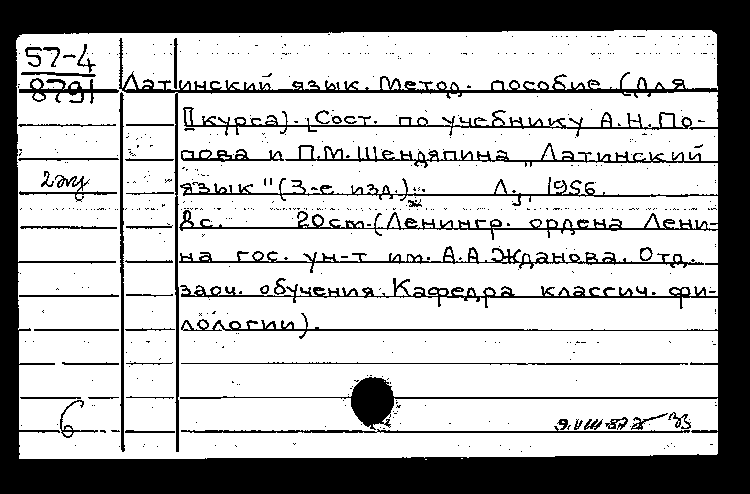 57-4
8791
Латинский язык. Метод. пособие. (Для
II курса). [Сост. по учебнику А.Н. По-
пова и П.М. Шендяпина „Латинский
2 эк
язык" (3-е изд.).. Л., 1956.
8 с. 20 см. (Ленингр. ордена Лени-
на гос. ун-т им. А.А. Жданова. Отд.
заоч. обучения. Кафедра классич. фи-
лологии).
6
9.VIII-87